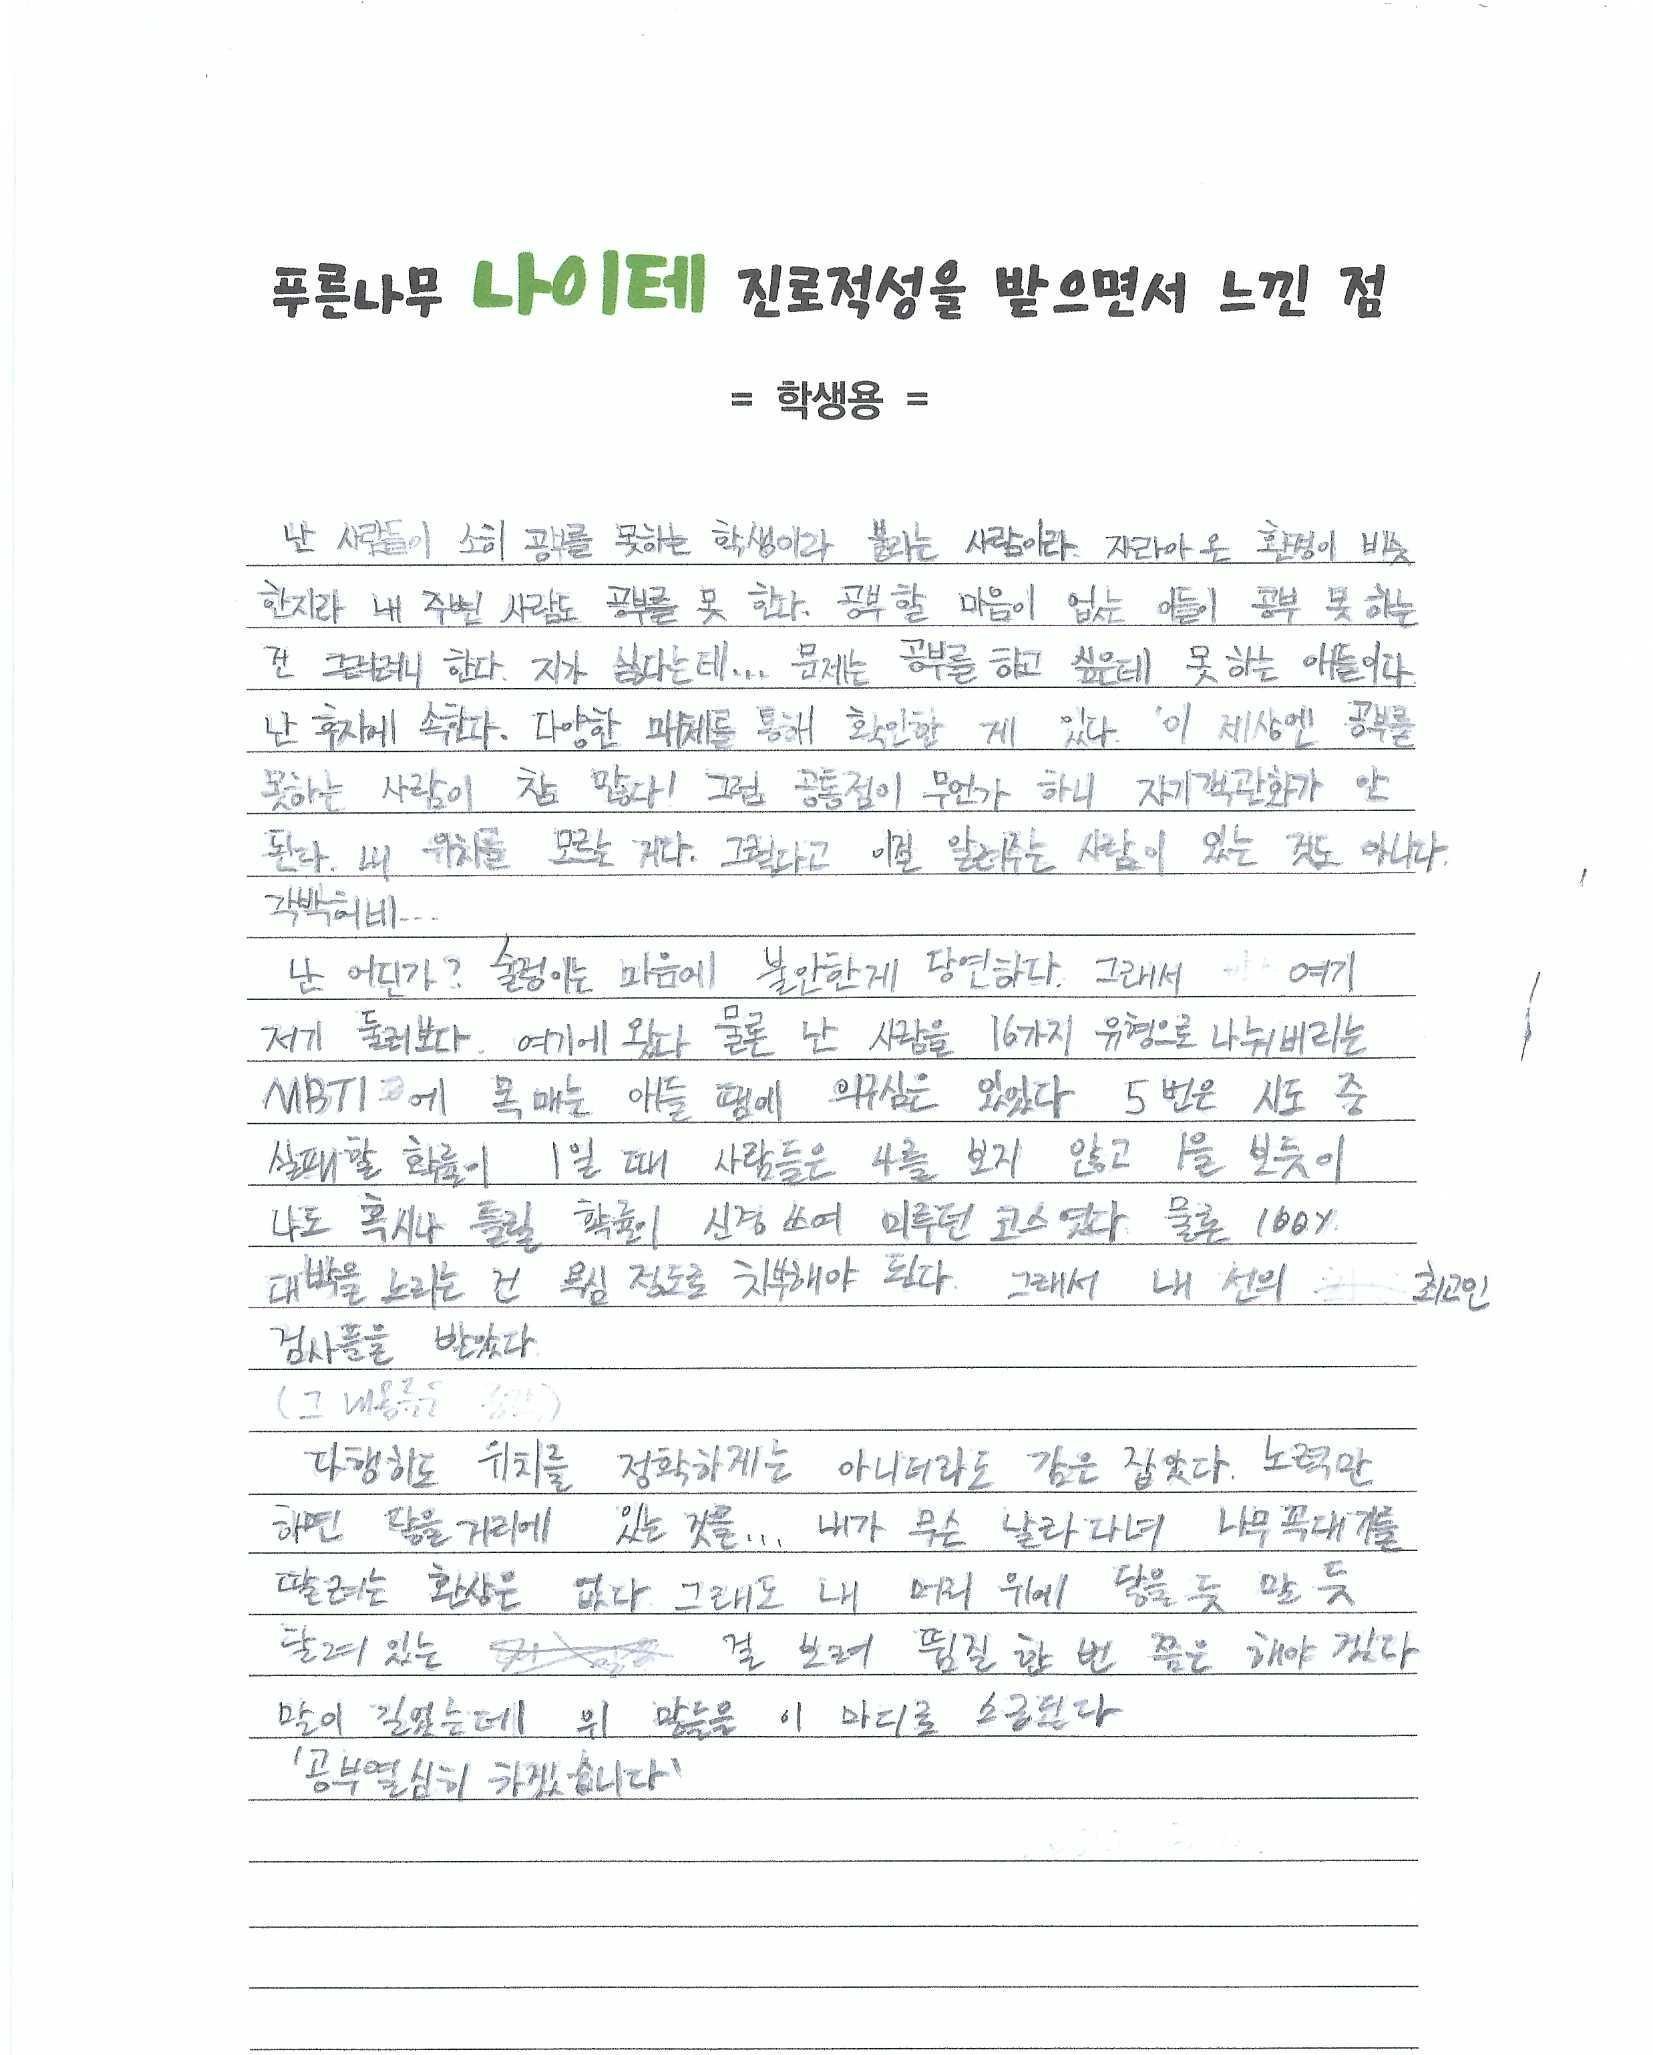 푸른나무 나이테 진로적성을 받으면서 느낀 점
= 학생용 =
난 사람들이 소히 공부를 못하는 학생이라 불리는 사람이라. 자라아 온 환경이 비슷
한지라 내 주변 사람도 공부를 못 한다. 공부할 마음이 없는 애들이 공부 못 하는
건 그러려니 한다. 지가 싫다는데... 문제는 공부를 하고 싶은데 못 하는 애들이다
난 후자에 속한다. 다양한 매체를 통해 확인한 게 있다. '이 세상엔 공부를
못하는 사람이 참 많다! 그럼 공통점이 무언가 하니 자기객관화가 안
된다. 내 위치를 모르는 거다. 그렇다고 이걸 알려주는 사람이 있는 것도 아니다.
각박허네...
난 어딘가? 술렁이는 마음에 불안한게 당연하다. 그래서 여기
저기 둘러보다. 여기에 왔다 물론 난 사람을 16가지 유형으로 나눠버리는
MBTI에 목 매는 애들 땜에 의구심은 있었다 5번은 시도 중
실패할 확률이 1일 때 사람들은 4를 보지 않고 1을 보듯이
나도 혹시나 틀릴 확률이 신경 쓰여 미루던 코스였다 물론 100%
대박을 노리는 건 욕심 정도로 치부해야 된다. 그래서 내 선의 최고인
검사를을 받았다
(그 내용
다행히도 위치를 정확하게는 아니더라도 감은 잡았다. 노력만
하면 닿을 거리에 있는 것을... 내가 무슨 날라다녀 나무꼭대기를
딸려는 환상은 없다 그래도 내 머리 위에 닿을 듯 말 듯
달려 있는 걸 보려 뜀질 한 번 쯤은 해야 겠다
말이 길었는데 위 말들을 이 마디로 소급된다
'공부열심히 하겠습니다'